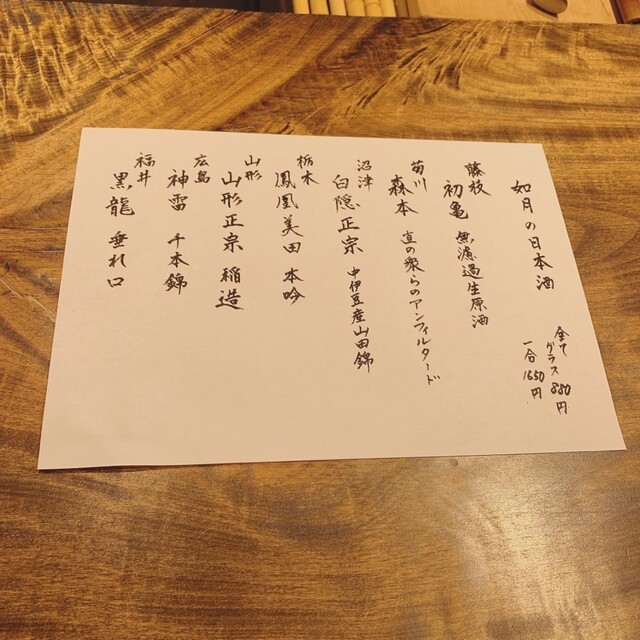 如月の日本酒
全て
グラス880円
一合1650円
藤枝
初亀 無濾過生原酒
菊川
森本 直の衆らのアンフィルタード
沼津
白隠正宗 中伊豆産山田錦
栃木
鳳凰美田 本吟
山形
山形正宗 稲造
広島
神雷 千本錦
福井
黒龍 垂れ口